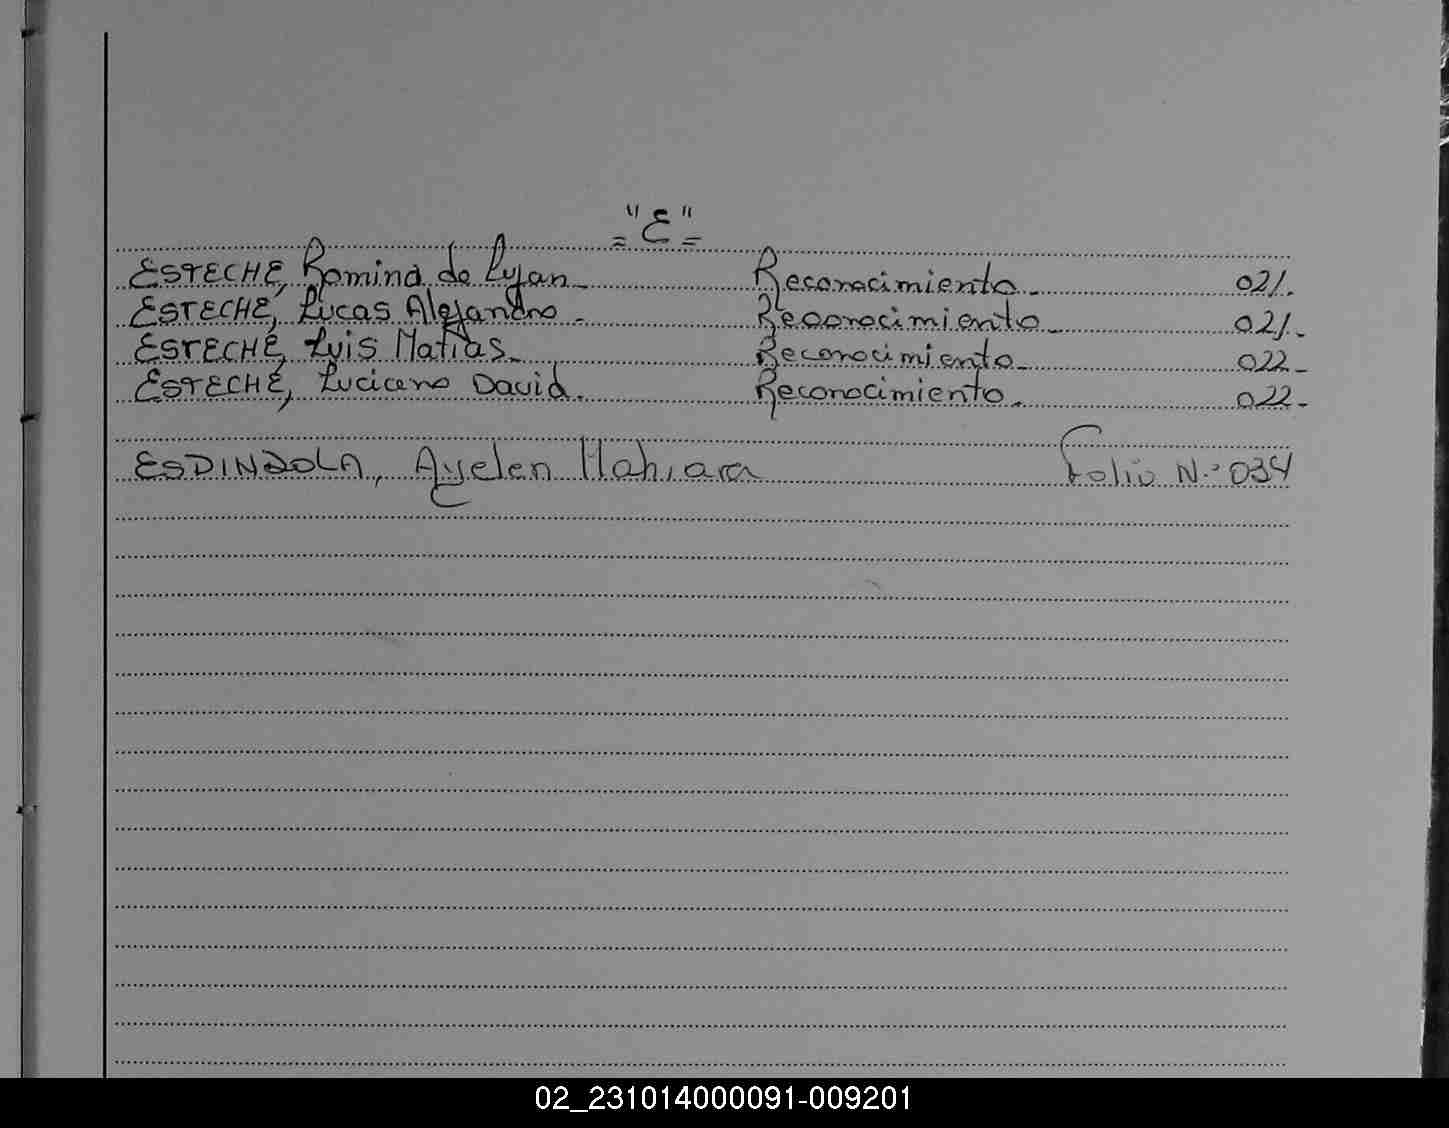 "E"
ESTECHE, Romina de Lujan. Reconocimiento. 021.
ESTECHE, Lucas Alejandro. Reconocimiento. 021.
ESTECHE, Luis Matias. Reconocimiento. 022.
ESTECHE, Luciano David. Reconocimiento. 022.
ESDINDOLA, Ayelen Nahiara Folio N.º 034
02_231014000091-009201